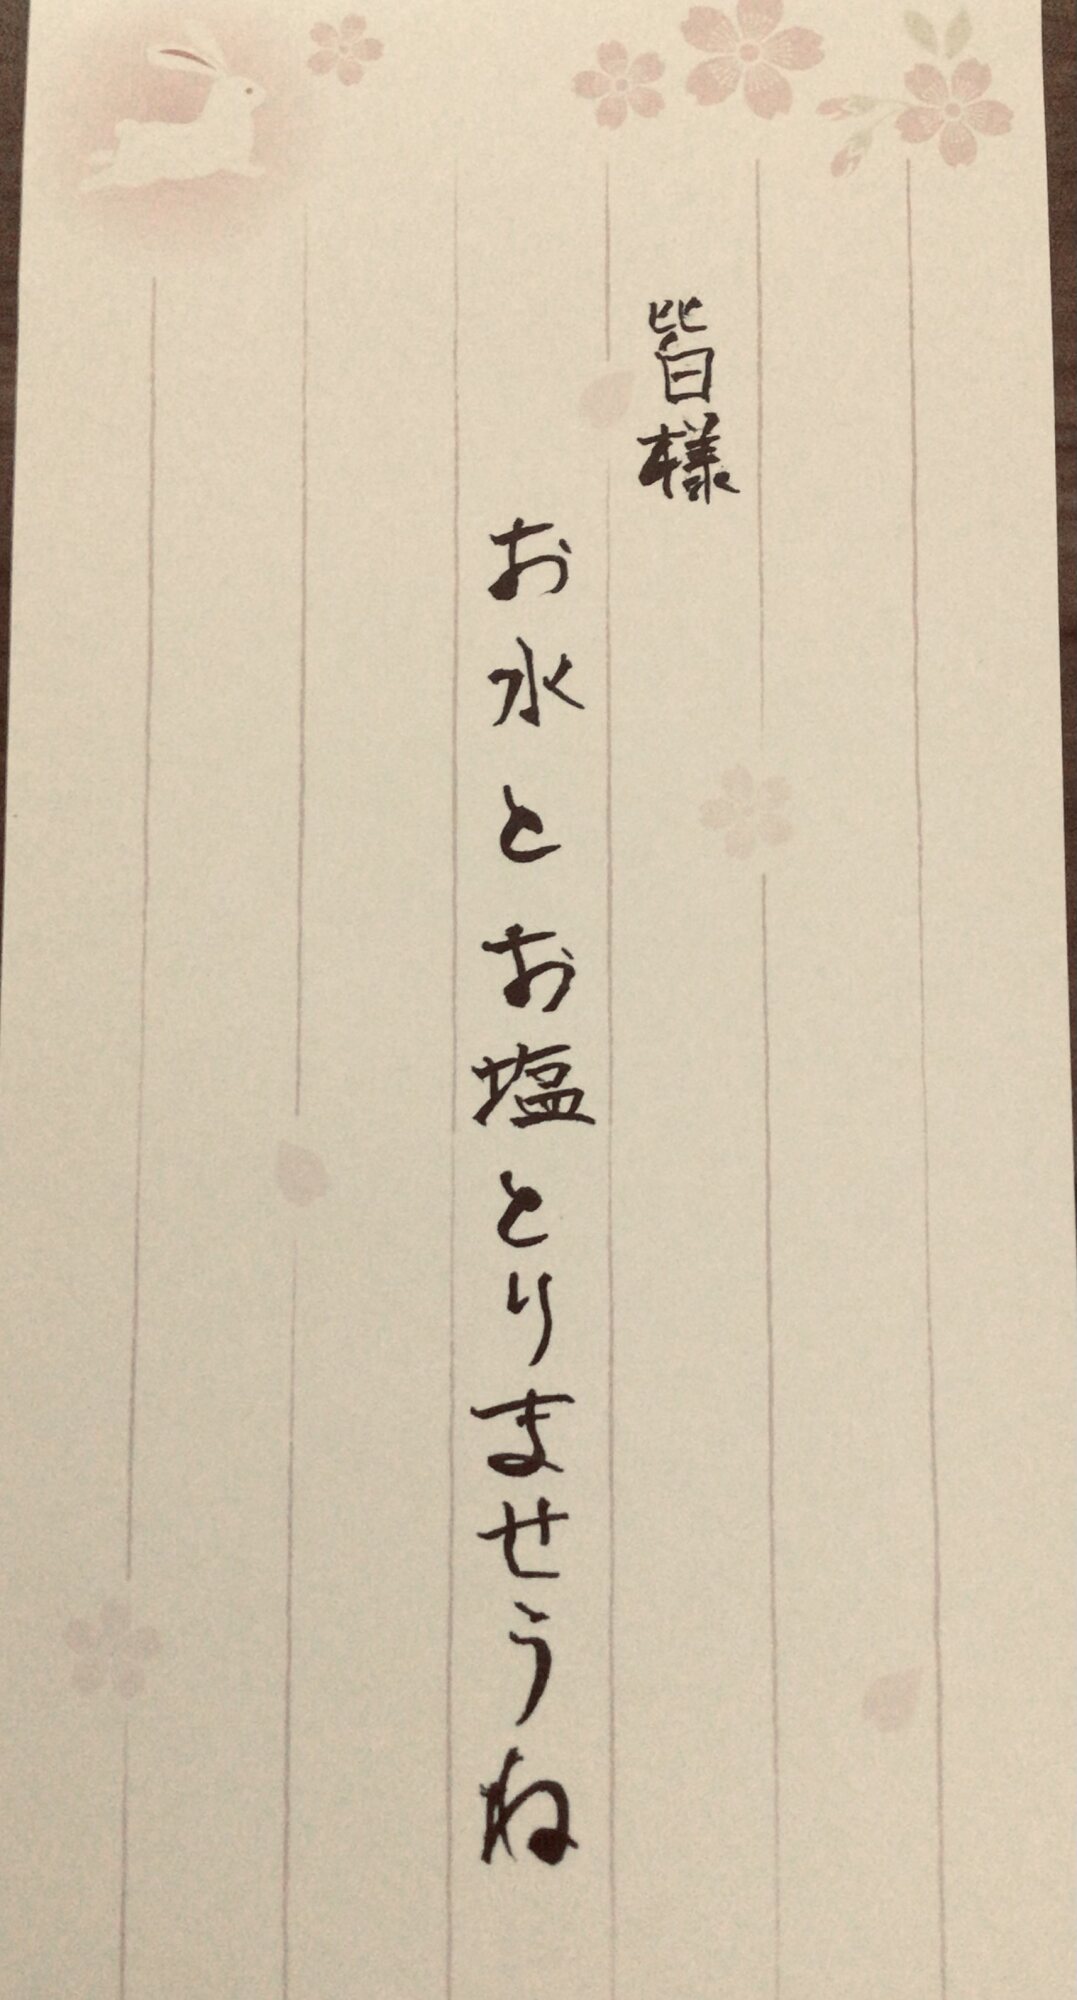 皆様
お水とお塩とりませうね